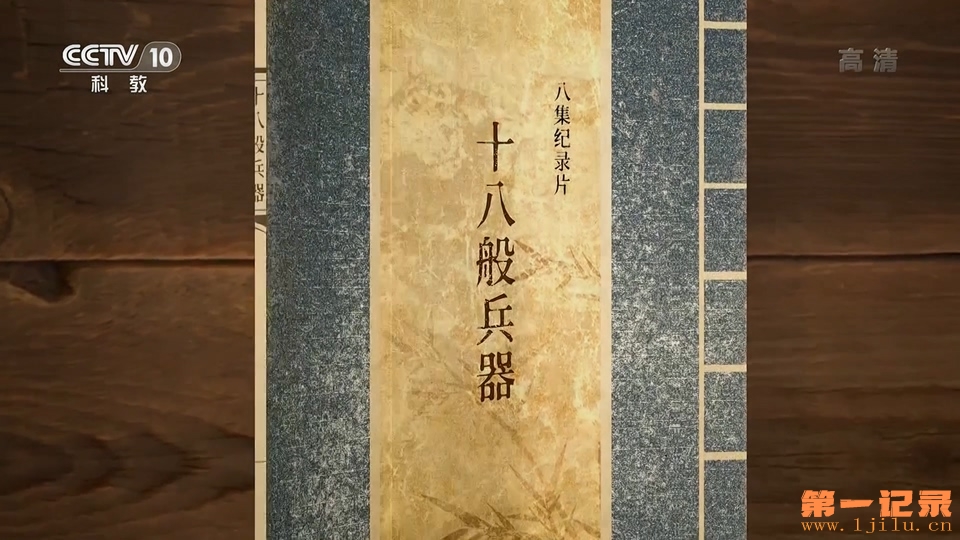 CCTV 10
科教
高清
八集纪录片
十八般兵器
十八般兵器
第一记录
www.1jilu.cn